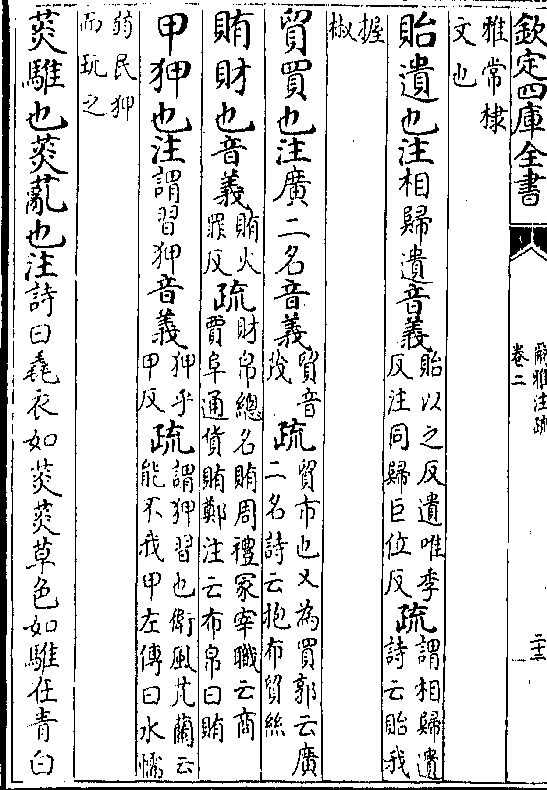 欽定四庫全書
爾雅注疏
卷二
二十二
雅常棣
文也
貽遺也注相歸遺音義貽以之反遺唯季
反注同歸巨位反疏謂相歸遺
詩云貽我
握
椒
貿買也注廣二名音義貿音
茂疏貿市也又為買郭云廣
二名詩云抱布貿絲
賄財也音義賄火
罪反疏財帛總名賄周禮冢宰職云商
賈阜通貨賄鄭注云布帛曰賄
甲狎也注謂習狎音義狎乎
甲反疏謂狎習也衛風芃蘭云
能不我甲左傳曰水懦
弱民狎
而玩之
菼騅也菼薍也注詩曰毳衣如菼菼草色如騅在青白